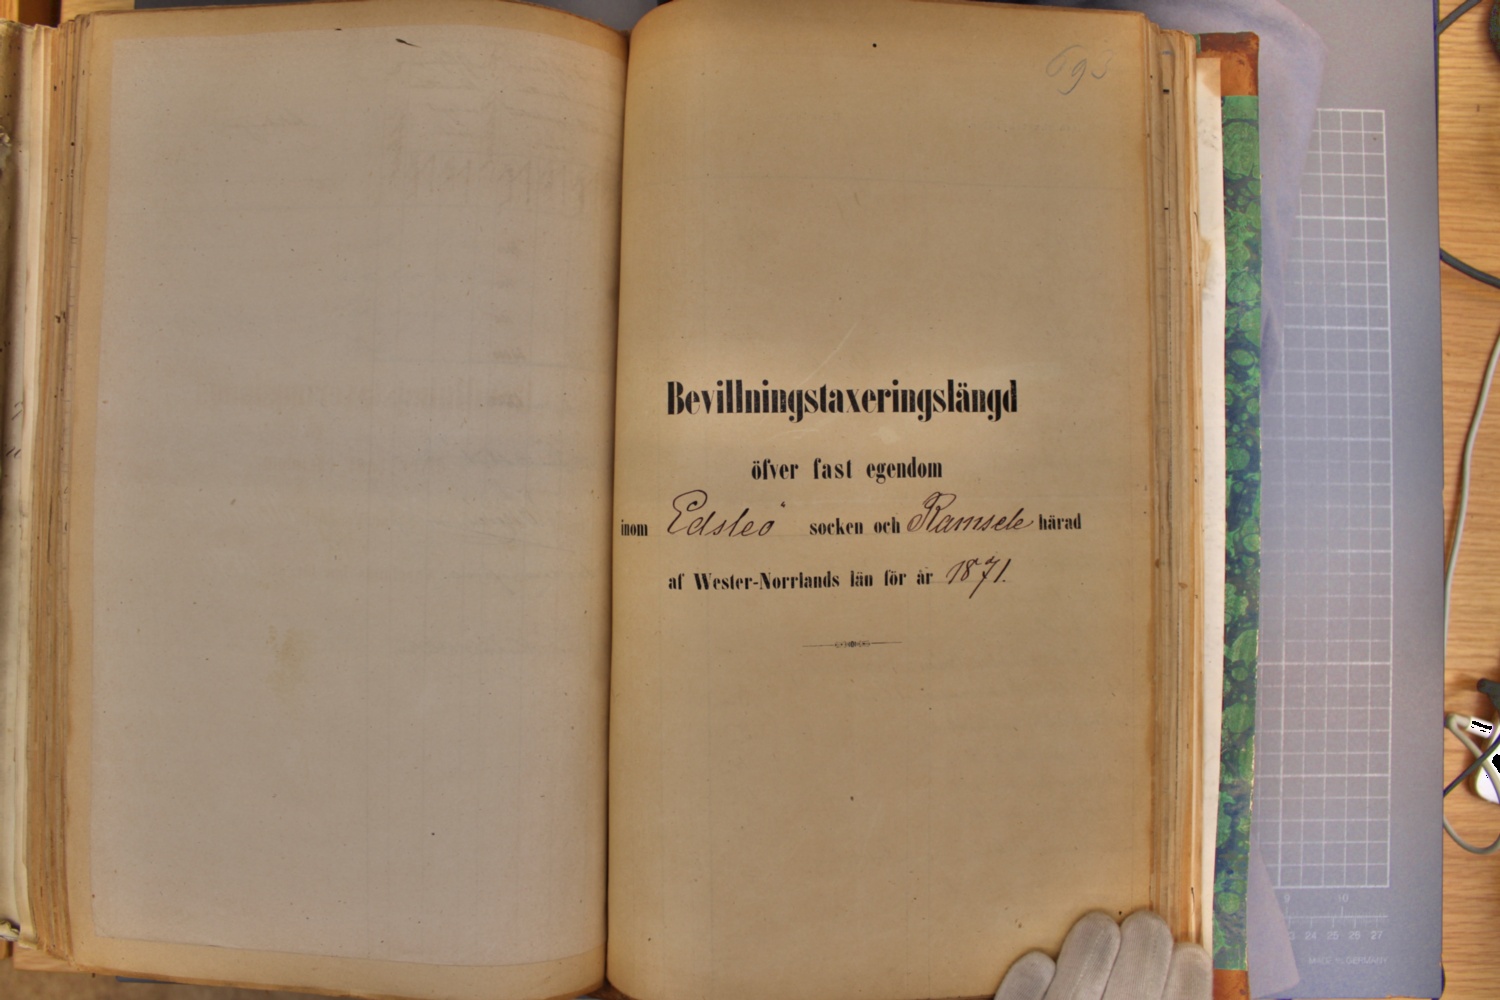 693
Bevillningstaxeringslängd
öfver fast egendom
inom Edsleö socken och Ramsele härad
af Wester-Norrlands län för år 1871.
9 10
3 24 25 26 27
MADE IN GERMANY